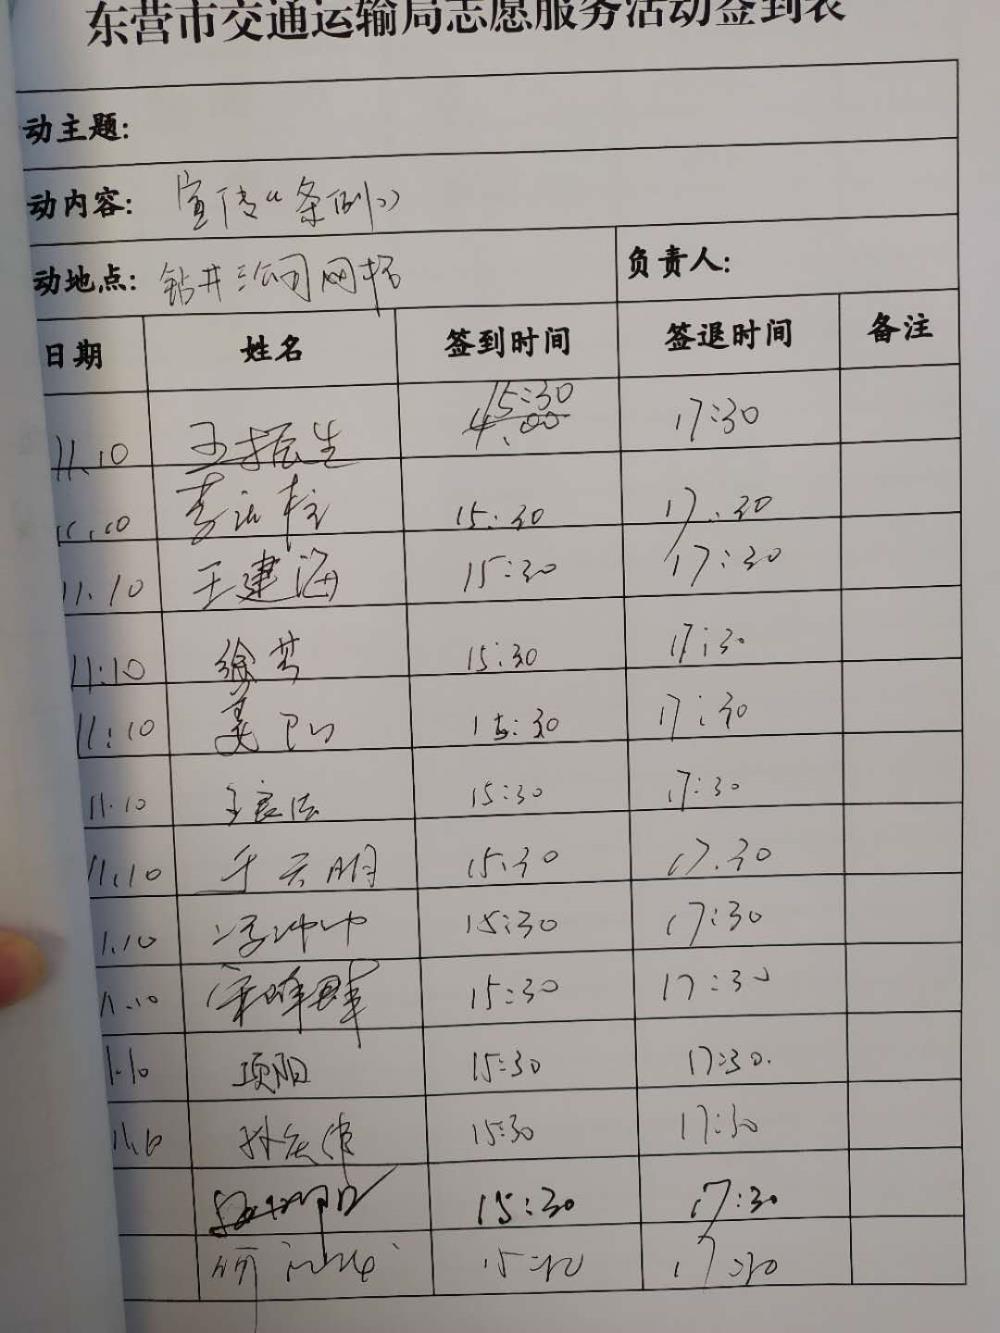 东营市交通运输局志愿服务活动签到表
动主题:
动内容: 宣传“条例”
动地点: 钻井三公司网格 负责人:
日期 姓名 签到时间 签退时间 备注
11.10 王振生 15:30 4.00 17:30
11.10 李 15:30 17:30
11.10 王建海 15:30 17:30
11:10 徐 15:30 17:30
11:10 15:30 17:30
11.10 15:30 17:30
11.10 于云明 15:30 17.30
1.10 冲冲 15:30 17:30
11.10 宋峰群 15:30 17:30
1.10 项阳 15:30 17:30.
11.10 孙 15:30 17:30
15:30 17:30
15:30 17:30